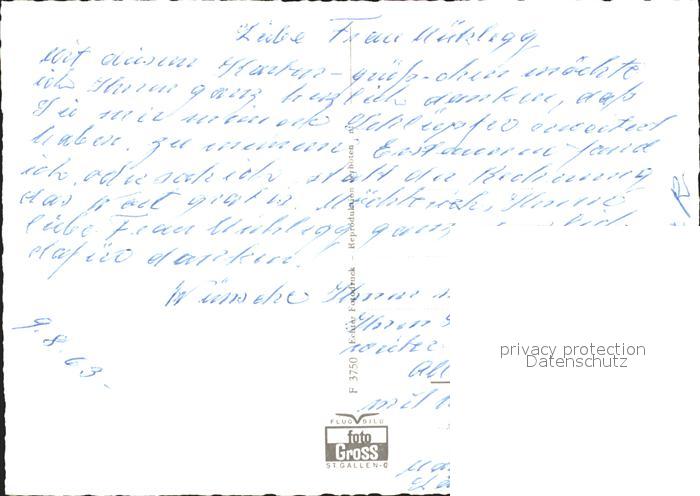 Liebe Frau Mühlegg
Mit diesem Karten-grüß-chen möchte
ich Ihnen ganz herzlich danken, daß
Sie mir meine Schlüpfer erweitert
haben. zu meinem Erstaunen fand
ich, oder sah ich, statt der Rechnung
das Wort gratis. Möchte ich, Ihnen
liebe Frau Mühlegg ganz
dafür danken.
Wünsche Ihnen
Ihren
weiter
All
mit
9.8.63.
F 3750 Echter Fotodruck – Reproduktion verboten
FLUGBILD
foto
Gross
ST. GALLEN-O
privacy protection
Datenschutz